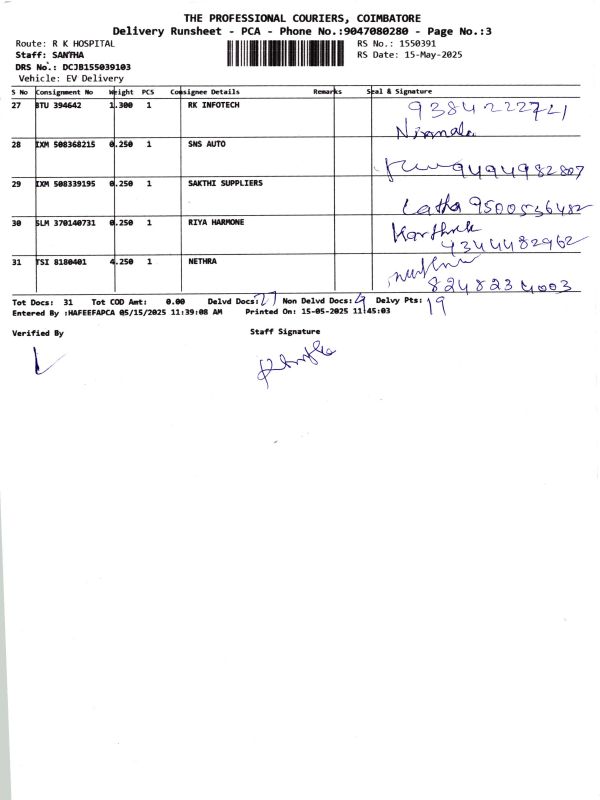 THE PROFESSIONAL COURIERS, COIMBATORE
Delivery Runsheet - PCA - Phone No.:9047080280 - Page No.:3
Route: R K HOSPITAL
RS No.: 1550391
Staff: SANTHA
RS Date: 15-May-2025
DRS No.: DCJB155039103
Vehicle: EV Delivery
S No Consignment No Weight PCS Consignee Details Remarks Seal & Signature
27 BTU 394642 1.300 1 RK INFOTECH 9384222721
Nirmala
28 IXM 508368215 0.250 1 SNS AUTO
9494982807
29 IXM 508339195 0.250 1 SAKTHI SUPPLIERS
Latha 9500536482
30 SLM 370140731 0.250 1 RIYA HARMONE Karthick
9344482962
31 TSI 8180401 4.250 1 NETHRA
8248234003
Tot Docs: 31 Tot COD Amt: 0.00 Delvd Docs: 27 Non Delvd Docs: 4 Delvy Pts: 19
Entered By :HAFEEFAPCA 05/15/2025 11:39:08 AM Printed On: 15-05-2025 11:45:03
Verified By Staff Signature